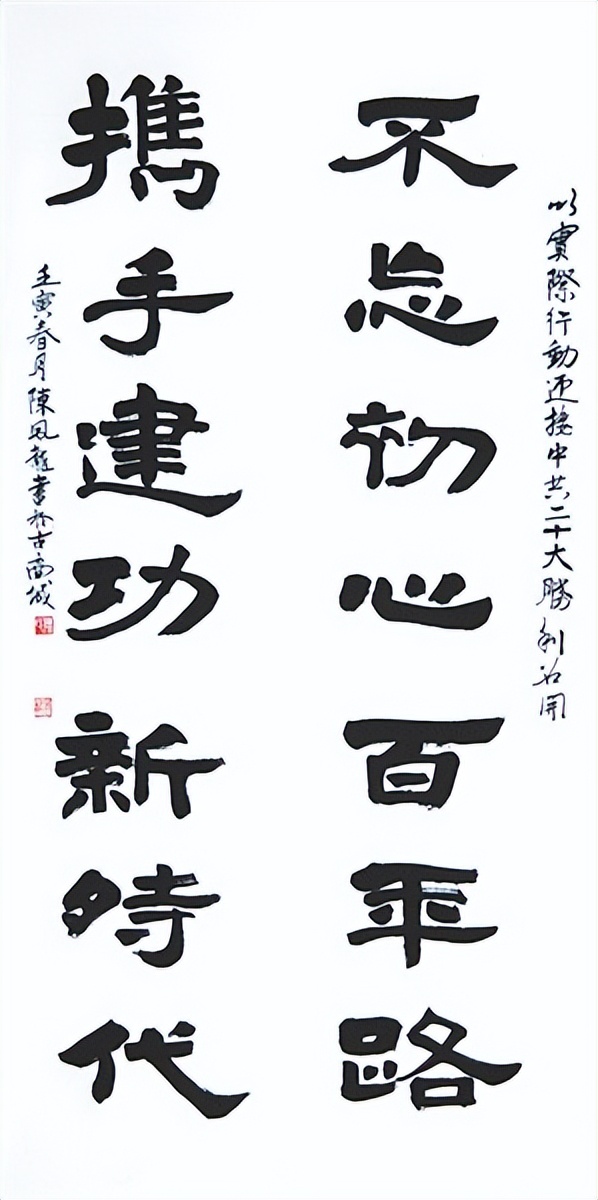 以實際行動迎接中共二十大勝利召開
不忘初心百年路
攜手建功新時代
壬寅春月陳鳳龍書於古商城